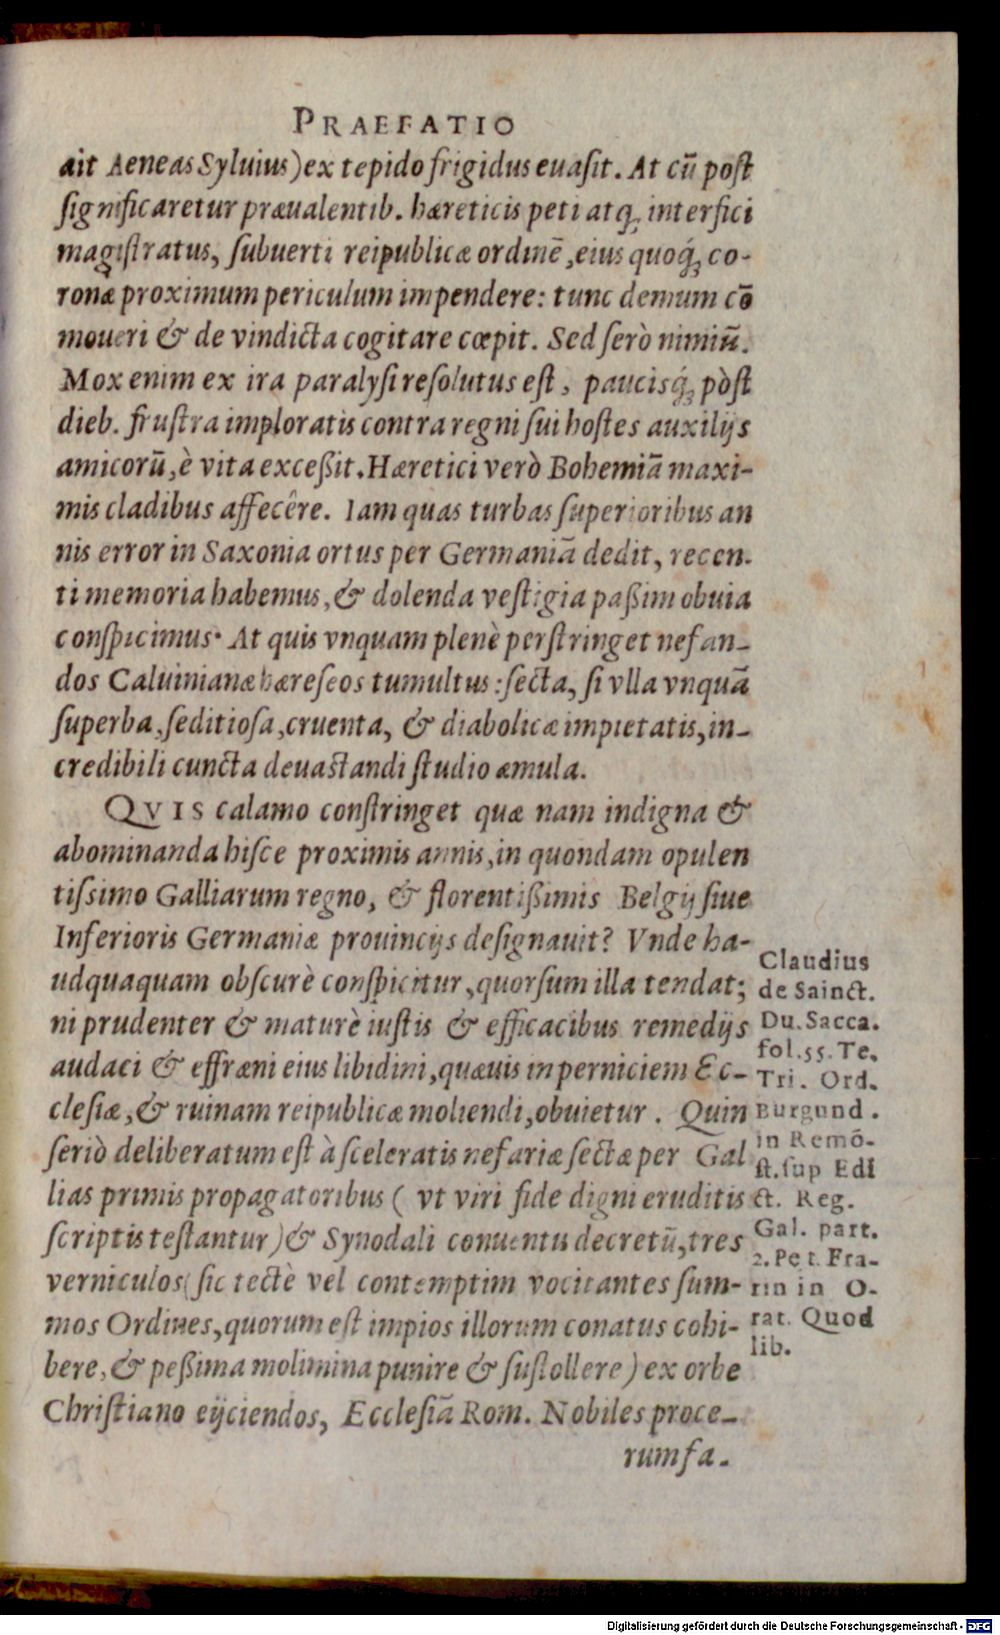 PRAEFATIO
ait Aeneas Syluius) ex tepido frigidus euaſit. At cū poſt
ſignificaretur præualentib. hæreticis peti atq́; interfici
magiſtratus, ſubuerti reipublicæ ordinē, eius quoq́; co-
ronæ proximum periculum impendere: tunc demum cō
moueri & de vindicta cogitare cœpit. Sed ſerò nimiū.
Mox enim ex ira paralyſi reſolutus eſt, paucisq́; pòſt
dieb. fruſtra imploratis contra regni ſui hoſtes auxilijs
amicorū, è vita exceßit. Hæretici verò Bohemiā maxi-
mis cladibus affecêre. Iam quas turbas ſuperioribus an
nis error in Saxonia ortus per Germaniā dedit, recen-
ti memoria habemus, & dolenda veſtigia paßim obuia
conſpicimus. At quis vnquam plenè perſtringet nefan-
dos Caluinianæ hæreſeos tumultus: ſecta, ſi vlla vnquā
ſuperba, ſeditioſa, cruenta, & diabolicæ impietatis, in-
credibili cuncta deuaſtandi ſtudio æmula.
QVIS calamo conſtringet quæ nam indigna &
abominanda hiſce proximis annis, in quondam opulen
tiſsimo Galliarum regno, & florentißimis Belgij ſiue
Inferioris Germaniæ prouincijs deſignauit? Vnde ha-
udquaquam obſcurè conſpicitur, quorſum illa tendat;
ni prudenter & maturè iuſtis & efficacibus remedijs
audaci & effræni eius libidini, quæuis in perniciem Ec-
cleſiæ, & ruinam reipublicæ moliendi, obuietur. Quin
ſeriò deliberatum eſt à ſceleratis nefariæ ſectæ per Gal
lias primis propagatoribus (vt viri fide digni eruditis
ſcriptis teſtantur) & Synodali conuentu decretū, tres
verniculos (ſic tectè vel contemptim vocitantes ſum-
mos Ordines, quorum eſt impios illorum conatus cohi-
bere, & peßima molimina punire & ſuſtollere) ex orbe
Chriſtiano eijciendos, Eccleſiā Rom. Nobiles proce-
rum fa-
Claudius
de Sainct.
Du. Sacca.
fol. 55. Te.
Tri. Ord.
Burgund.
in Remō-
ſt. ſup Edi
ct. Reg.
Gal. part.
2. Pet. Fra-
rin in O-
rat. Quod
lib.
Digitalisierung gefördert durch die Deutsche Forschungsgemeinschaft - DFG